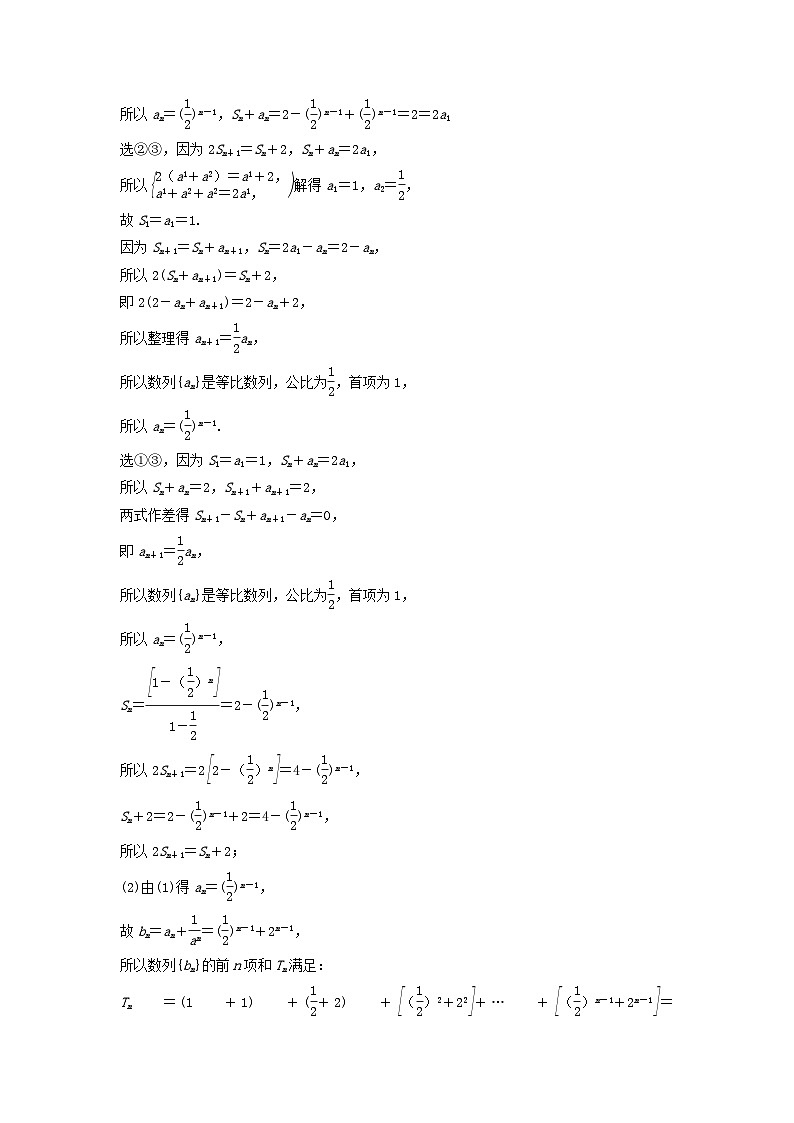 所以 aₙ=(1/2)ⁿ⁻¹,Sₙ+aₙ=2-(1/2)ⁿ⁻¹+(1/2)ⁿ⁻¹=2=2a₁
选②③,因为 2Sₙ₊₁=Sₙ+2,Sₙ+aₙ=2a₁,
所以{2(a¹+a²)=a¹+2, a¹+a²+a²=2a¹,)解得 a₁=1,a₂=1/2,
故 S₁=a₁=1.
因为 Sₙ₊₁=Sₙ+aₙ₊₁,Sₙ=2a₁-aₙ=2-aₙ,
所以 2(Sₙ+aₙ₊₁)=Sₙ+2,
即 2(2-aₙ+aₙ₊₁)=2-aₙ+2,
所以整理得 aₙ₊₁=1/2aₙ,
所以数列{aₙ}是等比数列,公比为1/2,首项为 1,
所以 aₙ=(1/2)ⁿ⁻¹.
选①③,因为 S₁=a₁=1,Sₙ+aₙ=2a₁,
所以 Sₙ+aₙ=2,Sₙ₊₁+aₙ₊₁=2,
两式作差得 Sₙ₊₁-Sₙ+aₙ₊₁-aₙ=0,
即 aₙ₊₁=1/2aₙ,
所以数列{aₙ}是等比数列,公比为1/2,首项为 1,
所以 aₙ=(1/2)ⁿ⁻¹,
Sₙ=[1-(1/2)ⁿ]/(1-1/2)=2-(1/2)ⁿ⁻¹,
所以 2Sₙ₊₁=2[2-(1/2)ⁿ]=4-(1/2)ⁿ⁻¹,
Sₙ+2=2-(1/2)ⁿ⁻¹+2=4-(1/2)ⁿ⁻¹,
所以 2Sₙ₊₁=Sₙ+2;
(2)由(1)得 aₙ=(1/2)ⁿ⁻¹,
故 bₙ=aₙ+1/aⁿ=(1/2)ⁿ⁻¹+2ⁿ⁻¹,
所以数列{bₙ}的前 n 项和 Tₙ满足:
Tₙ =(1 +1) +(1/2+2) +[(1/2)²+2²]+… +[(1/2)ⁿ⁻¹+2ⁿ⁻¹]=